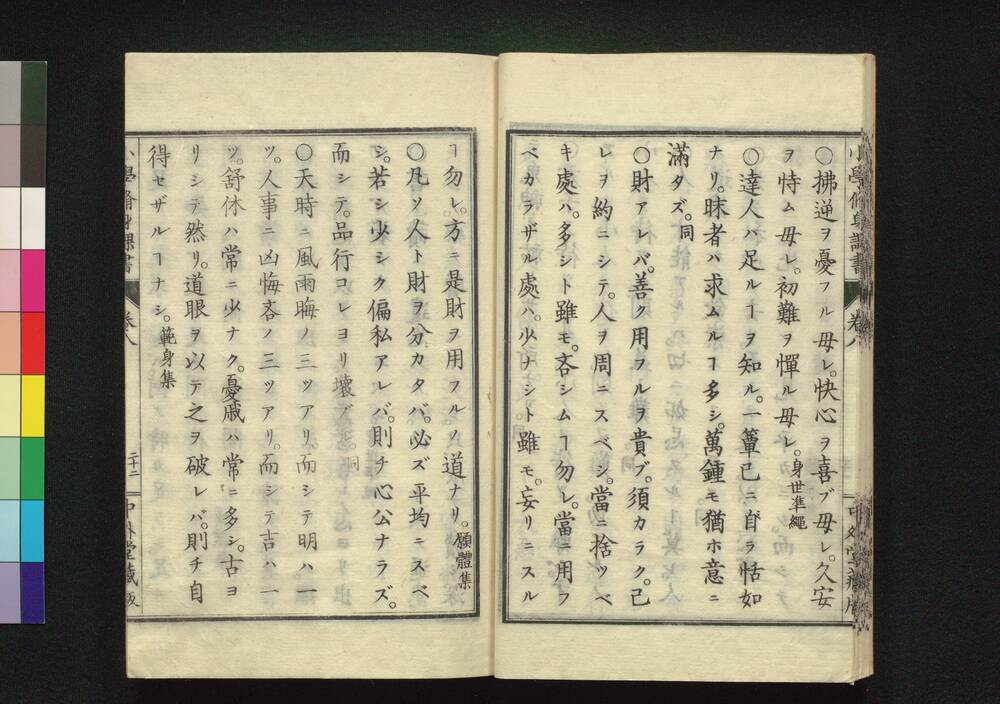 ○拂逆ヲ憂フル毋レ。快心ヲ喜ブ毋レ。久安
ヲ恃ム毋レ。初難ヲ憚ル毋レ。身世準繩
○達人ハ足ルヿヲ知ル。一簞已ニ自ラ恬如
ナリ。昧者ハ求ムルヿ多シ。萬鍾モ猶ホ意ニ
滿タズ。同
○財アレバ。善ク用フルヲ貴ブ。須カラク。己
レヲ約ニシテ。人ヲ周ニスベシ。當ニ捨ツベ
キ處ハ。多シト雖モ。吝シムヿ勿レ。當ニ用フ
ベカラザル處ハ。少ナシト雖モ。妄リニスル
小學修身課書
卷八
中外堂藏版
ヿ勿レ。方ニ是財ヲ用フルノ道ナリ。願體集
○凡ソ人ト財ヲ分カタバ。必ズ平均ニスベ
シ。若シ少シク偏私アレバ。則チ心公ナラズ。
而シテ。品行コレヨリ壞ブル。同
○天時ニ風雨晦ノ三ツアリ。而シテ明ハ一
ツ。人事ニ凶悔吝ノ三ツアリ。而シテ吉ハ一
ツ。舒休ハ常ニ少ナク。憂戚ハ常ニ多シ。古ヨ
リシテ然リ。道眼ヲ以テ之ヲ破レバ。則チ自
得セザルヿナシ。範身集
小學脩身課書
卷八
二十二
中外堂藏版